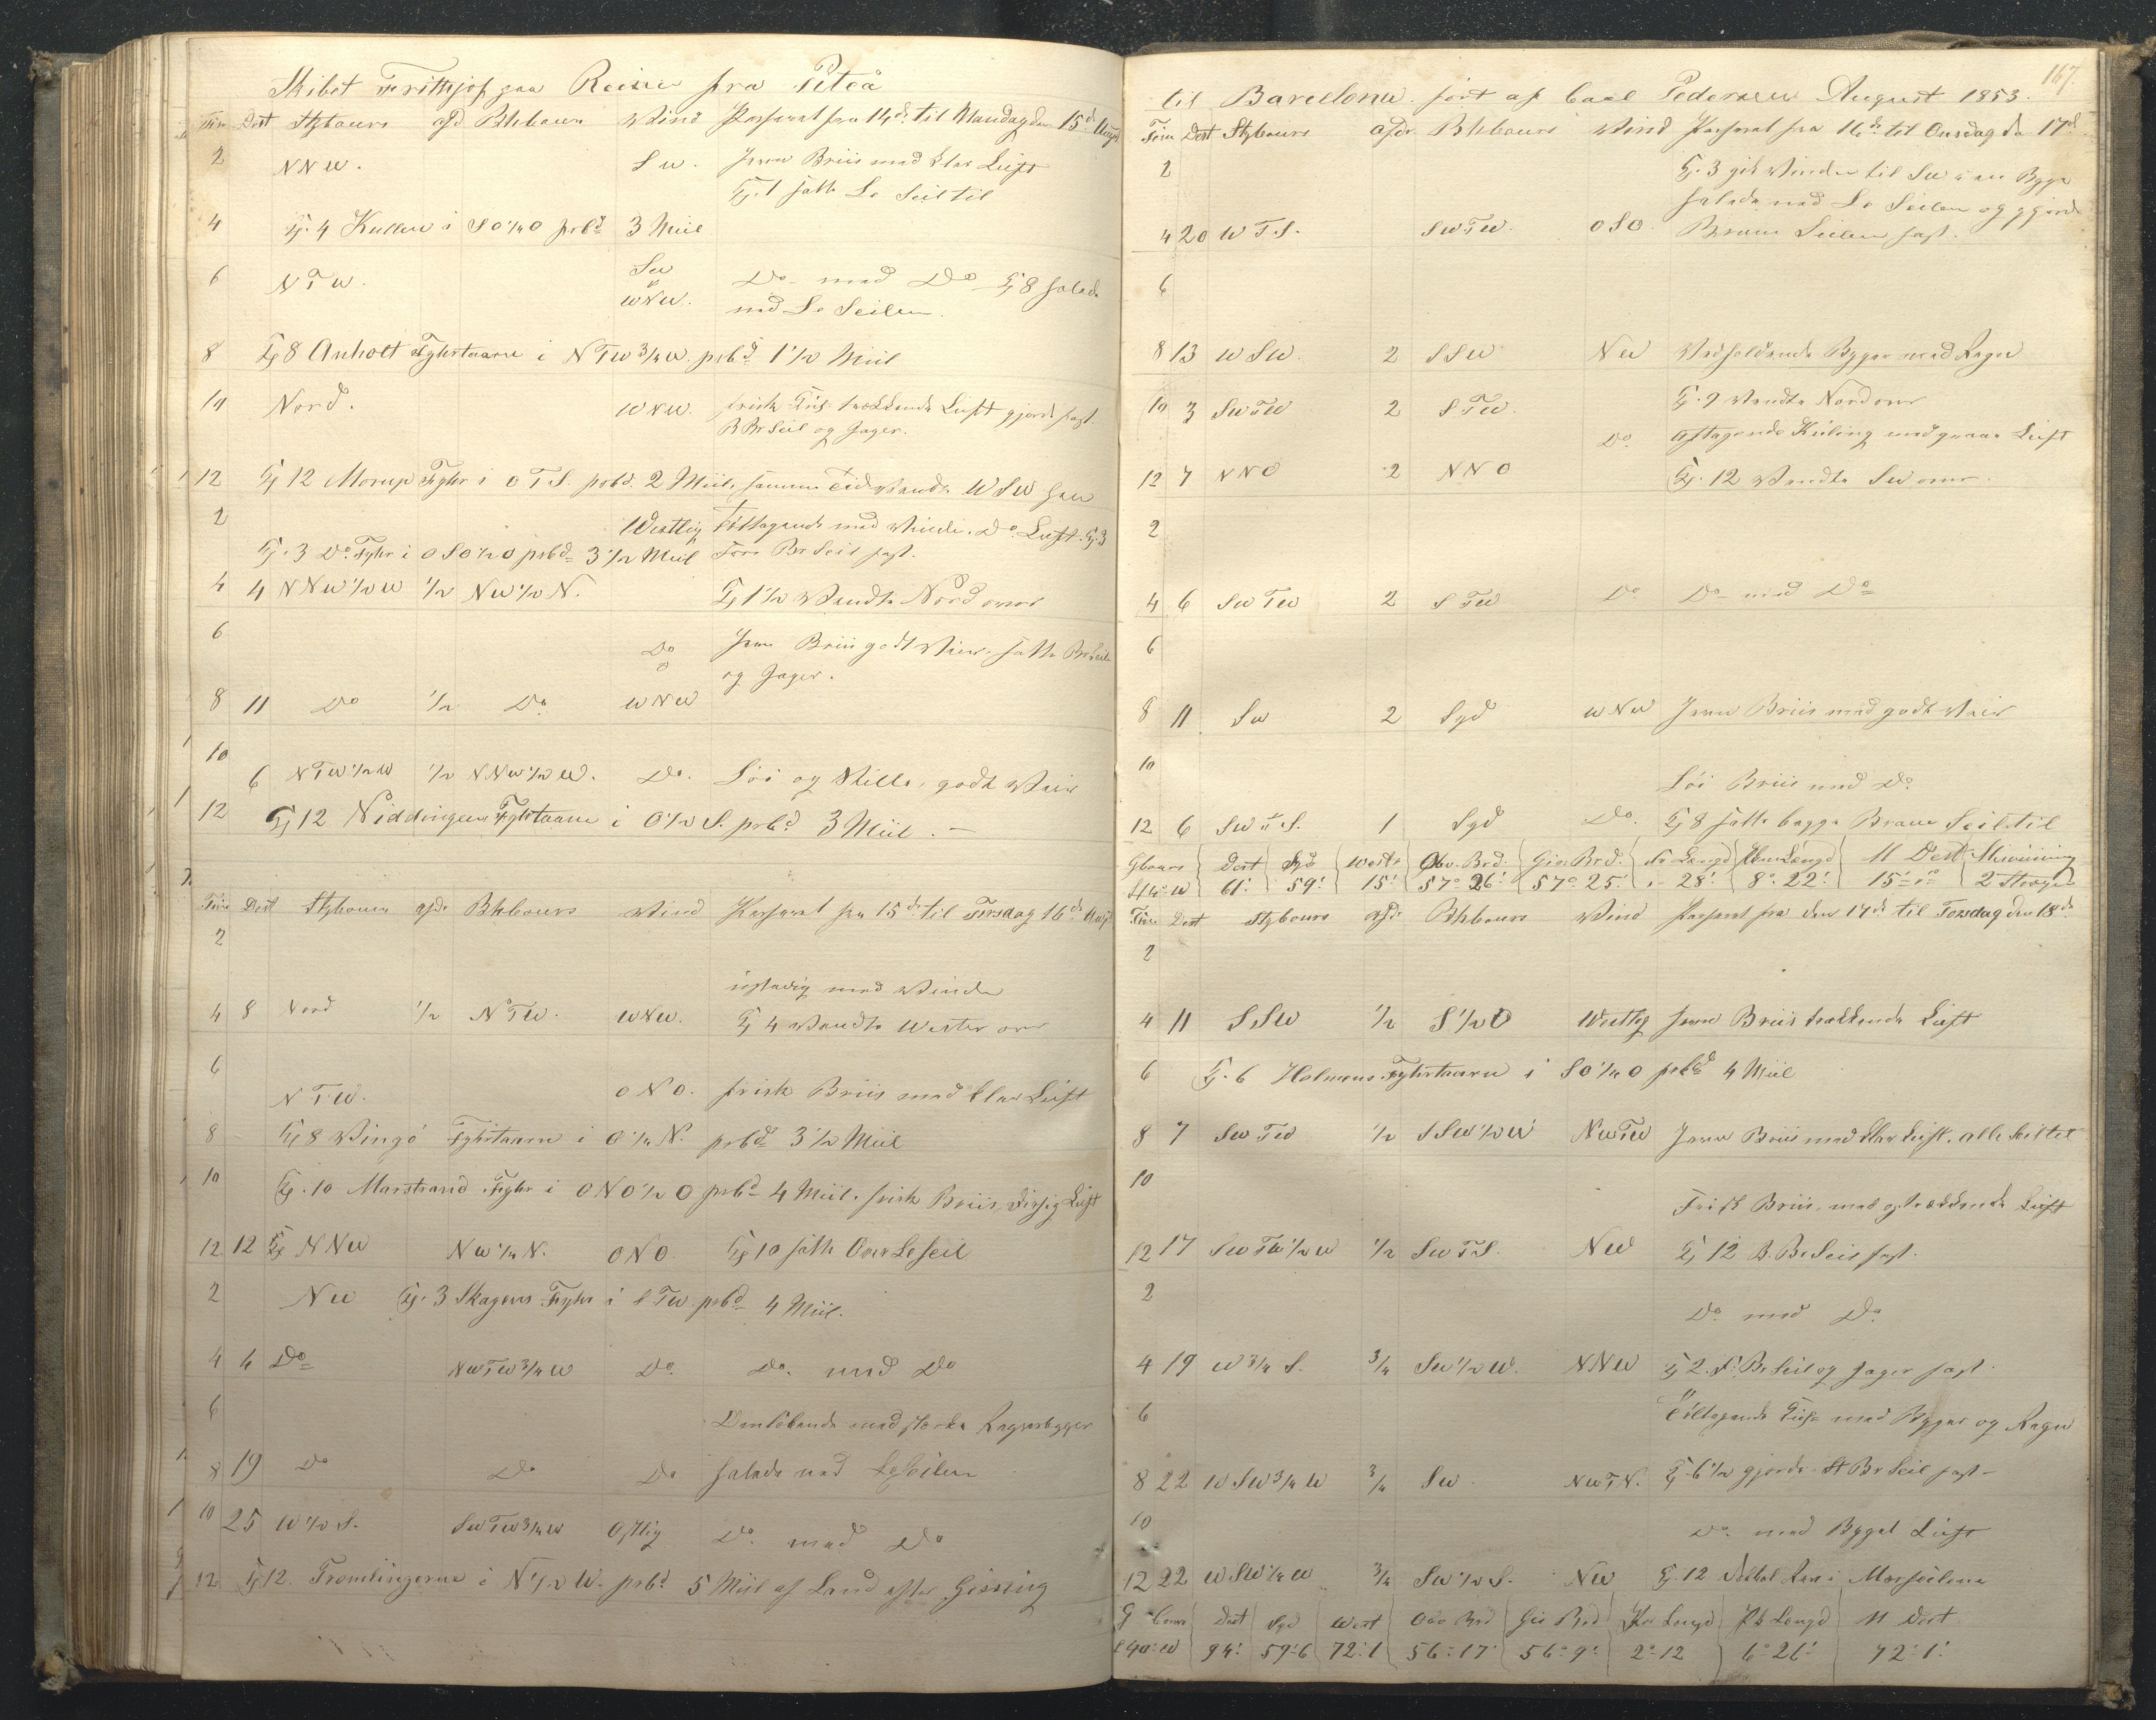 Skibet Frithjof paa Reise fra Piteå
Time Dist Stybours afd Bkbours Wind Passeret fra 14de til Mandag den 15de August
2 NNW. SW. Jevn Briis med klar Luft
Kl. 1 satte Læ Seil til
4 Kl. 4 Kullen i SO¼O prbd 3 Miil
6 NTW. SW
WNW. Do med Do Kl 8 halede
ned Læ Seilene.
8 Kl 8 Anholt Fyhrtaarn i NTW¾W. prbd 1½ Miil
10 Nord. WNW. frisk trækkende Luft gjorde fast
B Br Seil og Jager.
12 Kl 12 Morup Fyhr i OTS. prbd. 2 Miil, samme Tid Wendte WSW
2 Westlig Tiltagende med Winden. Do Luft. Kl. 3
Kl. 3 Do Fyhr i OSO½O prbd 3½ Miil Fore Br Seil fast.
4 4 NNW½W ½ NW½N. Kl 1½ Wendte Nord over
6 Do Jevn Briis godt Weir, satte Br Seile
og Jager.
8 11 Do ½ Do WNW
10
6 NTW½W ½ NNW½W. Do. Løi og Stille, godt Weir
12 Kl 12 Niddingen Fyhrtaarn i O½S. prbd 3 Miil. —
Time Dist Stybours afdr Bkbours Wind Passeret fra 15de til Tirsdag 16de Aug
2
ustadig med Winden
4 8 Nord ½ NTW. WNW. Kl 4 Wendte Wester over
6
NTW. ONO. frisk Briis med klar Luft
8 Kl 8 Wingø Fyhrtaarn i O¼N. prbd 3½ Miil
10 Kl. 10 Marstrand Fyhr i ONO½O prbd 4 Miil. frisk Briis, disig Luft
12 12 NNW NW¼N. ONO. Kl 10 satte Over Læseil
2 NW Kl. 3 Skagens Fyhr i STW prbd 4 Miil.
4 4 Do NWTW¾W Do. Do. med Do
6 Omløbende med stærke Regnbyger
8 19 Do Do Do halede ned Læseilene
10 25 W½S. SWTW¾W Østlig Do. med Do
12 Kl 12. Tromlingerne i N½W. prbd 5 Miil af Land efter Gissning
167.
til Barcelona. ført af Carl Pedersen August 1853.
Time Dist Stybours afdr Bkbours Wind Passeret fra 16de til Onsdag den 17de
2 Kl. 3 gik Winden til SW i en Byge
halede ned Læ Seilene og gjorde
4 20 WTS. SWTW. OSO. Bram Seilene fast.
6
8 13 WSW. 2 SSW NW Vedholdende Byger med Regn
10 3 SWTW 2 STW. Kl. 9 Wendte Nord over
Do. Aftagende Kuling med graae Luft
12 7 NNO 2 NNO Kl. 12 Wendte SW over.
2
4 6 SWTW 2 STW Do Do med Do
6
8 11 SW 2 Syd WNW Jevn Briis med godt Weir
10
Løi Briis med Do
12 6 SWTS. 1 Syd Do. Kl 8 satte begge Bram Seil til
Gbours Dist Syd West Obs. Brd. Gis Brd. Fr Længd Længd M Dist Misvisning
44°W 61' 59' 15' 57° 26' 57° 25' 28' 8° 22' 15' 2 Streger
Time Dist Stybours afdr Bkbours Wind Passeret fra den 17de til Torsdag den 18de
2
4 11 SSW ½ S½O Westlig Jevn Briis trækkende Luft
6 Kl. 6 Holmens Fyhrtaarn i SO¼O prbd 4 Miil
8 7 SWTW ½ SSW½W NWTW Jevn Briis med klar Luft. alle Seil til
10
Frisk Briis. med optrækkende Luft
12 17 SWTW½W ½ SWTS. NW Kl 12 B. Br Seil fast.
2
Do. med Do.
4 19 W¾S. ¾ SW½W. NNW Kl 2. F. Br Seil og Jager fast.
6 Tiltagende med Byger og Regn
8 22 WSW¾W ¾ SW. NWTN. Kl 6½ gjorde St Br Seil fast —
10
Do. med Byget Luft
12 22 WSW¼W ¾ SW½S. NW Kl. 12 Rev i Merseilene
G Cours Dist Syd West Obs Brd Gis Brd Længd Længd M Dist
S 40°W 94' 59'6 72'1 56°17' 56°9' 2°12 6°26' 72'1'